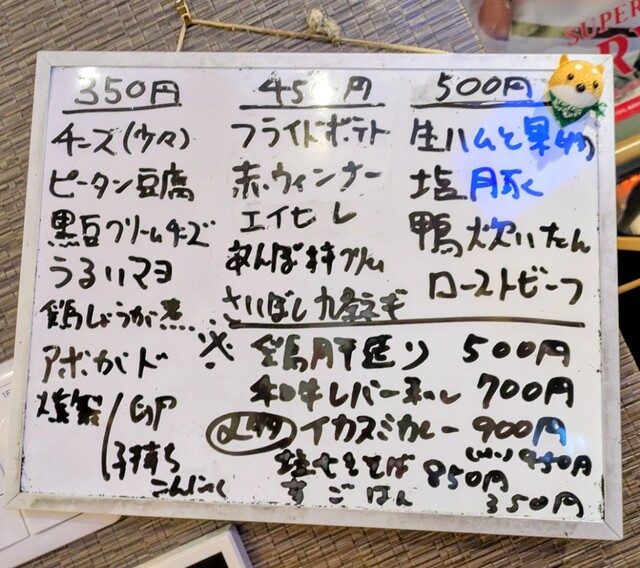 350円
チーズ(少々)
ピータン豆腐
黒豆クリームチーズ
うるいマヨ
鶏しょうが煮
アボカド
燻製
子持ち
こんにゃく
450円
フライドポテト
赤ウィンナー
エイヒレ
あんぽ柿クリーム
さいぼし九条ネギ
500円
生ハムと果物
塩豚
鴨炊いたん
ローストビーフ
※
鶏肝煮 500円
和牛レバー 700円
イカスミカレー 900円
950円
そば 850円
ごはん 350円
SUPER